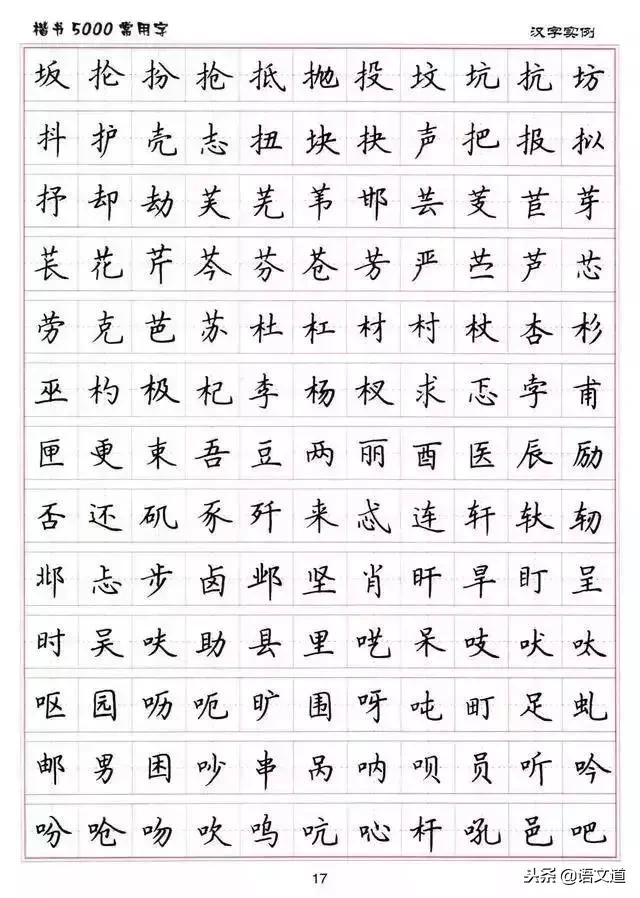 楷书5000常用字 汉字实例
坂 抡 扮 抢 抵 抛 投 坟 坑 抗 坊
抖 护 壳 志 扭 块 抉 声 把 报 拟
抒 却 劫 芙 芜 苇 邯 芸 芰 苣 芽
苌 花 芹 芩 芬 苍 芳 严 苎 芦 芯
劳 克 芭 苏 杜 杠 材 村 杖 杏 杉
巫 杓 极 杞 李 杨 杈 求 忑 孛 甫
匣 更 束 吾 豆 两 丽 酉 医 辰 励
否 还 矶 豕 歼 来 忒 连 轩 轪 轫
邶 忐 步 卤 邺 坚 肖 旰 旱 盯 呈
时 吴 呋 助 县 里 呓 呆 吱 吠 呔
呕 园 呖 呃 旷 围 呀 吨 町 足 虬
邮 男 困 吵 串 呙 呐 呗 员 听 吟
吩 呛 吻 吹 呜 吭 吣 杆 吼 邑 吧
17
头条 @语文道